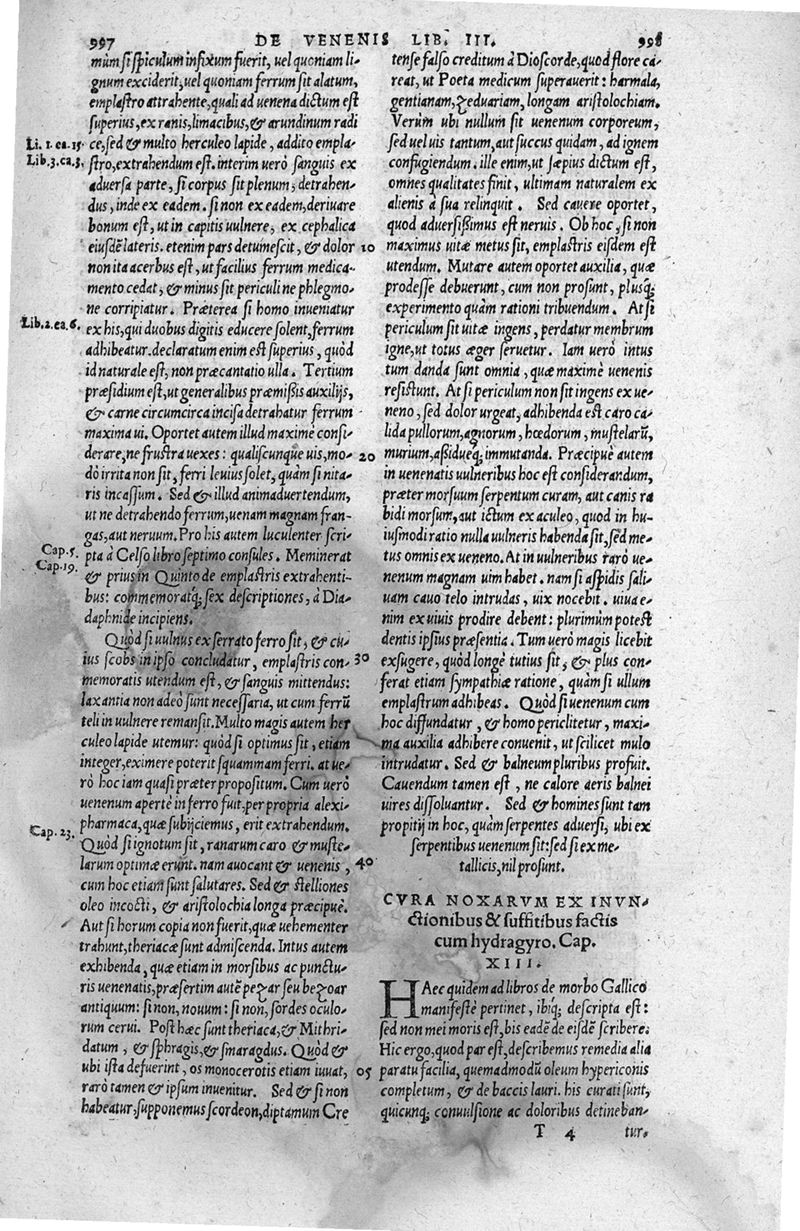 997 DE VENENIS LIB. III. 998
mùm si spiculum infixum fuerit, uel quoniam li-
gnum exciderit, uel quoniam ferrum sit alatum,
emplastro attrahente, quali ad uenena dictum est
superius, ex ranis, limacibus, & arundinum radi
Li. 1. ca. 15.
ce, sed & multo herculeo lapide, addito empla-
Lib. 3. ca. 3.
stro, extrahendum est. interim uerò sanguis ex
aduersa parte, si corpus sit plenum, detrahen-
dus, inde ex eadem. si non ex eadem, deriuare
bonum est, ut in capitis uulnere, ex cephalica
eiusdẽ lateris. etenim pars detumescit, & dolor 10
non ita acerbus est, ut facilius ferrum medica-
mento cedat, & minus sit periculi ne phlegmo-
ne corripiatur. Præterea si homo inueniatur
Lib. 2. ca. 6.
ex his, qui duobus digitis educere solent, ferrum
adhibeatur. declaratum enim est superius, quòd
id naturale est, non præcantatio ulla. Tertium
præsidium est, ut generalibus præmißis auxilijs,
& carne circumcirca incisa detrahatur ferrum
maxima ui. Oportet autem illud maximè consi-
derare, ne frustra uexes: qualiscunque uis, mo- 20
dò irrita non sit, ferri leuius solet, quàm si nita-
ris incassum. Sed & illud animaduertendum,
ut ne detrahendo ferrum, uenam magnam fran-
gas, aut neruum. Pro his autem luculenter scri-
Cap. 5.
pta à Celso libro septimo consules. Meminerat
Cap. 19.
& prius in Quinto de emplastris extrahenti-
bus: commemoratq́; sex descriptiones, à Dia-
daphnide incipiens.
Quòd si uulnus ex serrato ferro sit, & cu-
ius scobs in ipso concludatur, emplastris con- 30
memoratis utendum est, & sanguis mittendus:
laxantia non adeò sunt necessaria, ut cum ferrũ
teli in uulnere remansit. Multo magis autem her
culeo lapide utemur: quòd si optimus sit, etiam
integer, eximere poterit squammam ferri. at ue-
rò hoc iam quasi præter propositum. Cum uerò
uenenum apertè in ferro fuit, per propria alexi-
pharmaca, quæ subijciemus, erit extrahendum.
Cap. 23.
Quòd si ignotum sit, ranarum caro & muste-
larum optimæ erunt. nam auocant & uenenis, 40
cum hoc etiam sunt salutares. Sed & stelliones
oleo incocti, & aristolochia longa præcipuè.
Aut si horum copia non fuerit, quæ uehementer
trahunt, theriacæ sunt admiscenda. Intus autem
exhibenda, quæ etiam in morsibus ac punctu-
ris uenenatis, præsertim autẽ pezar seu bezoar
antiquum: si non, nouum: si non, sordes oculo-
rum cerui. Post hæc sunt theriaca, & Mithri-
datum, & sphragis, & smaragdus. Quòd &
ubi ista defuerint, os monocerotis etiam iuuat, 05
rarò tamen & ipsum inuenitur. Sed & si non
habeatur, supponemus scordeon, diptamum Cre
tense falso creditum à Dioscorde, quod flore ca-
reat, ut Poeta medicum superauerit: harmala,
gentianam, zeduariam, longam aristolochiam.
Verùm ubi nullum sit uenenum corporeum,
sed uel uis tantum, aut succus quidam, ad ignem
confugiendum. ille enim, ut sæpius dictum est,
omnes qualitates finit, ultimam naturalem ex
alienis à sua relinquit. Sed cauere oportet,
quod aduersißimus est neruis. Ob hoc, si non
maximus uitæ metus sit, emplastris eisdem est
utendum. Mutare autem oportet auxilia, quæ
prodesse debuerunt, cum non prosunt, plusq́;
experimento quàm rationi tribuendum. At si
periculum sit uitæ ingens, perdatur membrum
igne, ut totus æger seruetur. Iam uerò intus
tum danda sunt omnia, quæ maximè uenenis
resistunt. At si periculum non sit ingens ex ue-
neno, sed dolor urgeat, adhibenda est caro ca-
lida pullorum, agnorum, hœdorum, mustelarũ,
murium, aßidueq́; immutanda. Præcipuè autem
in uenenatis uulneribus hoc est considerandum,
præter morsuum serpentum curam, aut canis ra
bidi morsum, aut ictum ex aculeo, quod in hu-
iusmodi ratio nulla uulneris habenda sit, sed me-
tus omnis ex ueneno. At in uulneribus rarò ue-
nenum magnam uim habet. nam si aspidis sali-
uam cauo telo intrudas, uix nocebit. uiua e-
nim ex uiuis prodire debent: plurimùm potest
dentis ipsius præsentia. Tum uerò magis licebit
exsugere, quòd longè tutius sit, & plus con-
ferat etiam sympathiæ ratione, quàm si ullum
emplastrum adhibeas. Quòd si uenenum cum
hoc diffundatur, & homo periclitetur, maxi-
ma auxilia adhibere conuenit, ut scilicet mulo
intrudatur. Sed & balneum pluribus profuit.
Cauendum tamen est, ne calore aeris balnei
uires dissoluantur. Sed & homines sunt tam
propitij in hoc, quàm serpentes aduersi, ubi ex
serpentibus uenenum sit: sed si ex me-
tallicis, nil prosunt.
CVRA NOXARVM EX INVN-
ctionibus & suffitibus factis
cum hydragyro. Cap.
XIII.
HAec quidem ad libros de morbo Gallico
manifestè pertinet, ibiq́; descripta est:
sed non mei moris est, bis eadẽ de eisdẽ scribere.
Hic ergo, quod par est, describemus remedia alia
paratu facilia, quemadmodũ oleum hypericonis
completum, & de baccis lauri. his curati sunt,
quicunq; conuulsione ac doloribus detineban-
T 4 tur.